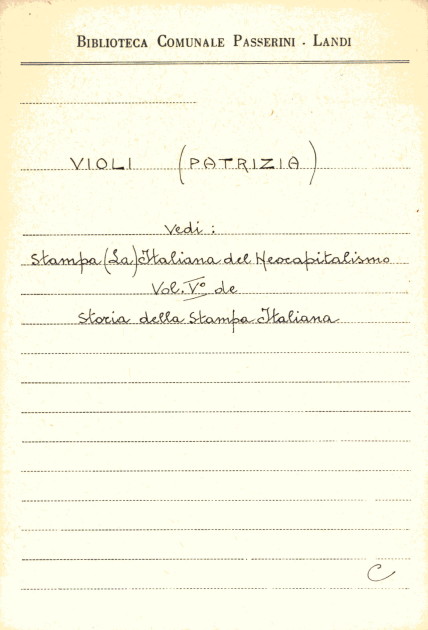 BIBLIOTECA COMUNALE PASSERINI - LANDI
VIOLI (PATRIZIA)
Vedi:
Stampa (La) Italiana del Neocapitalismo
Vol. V° de
Storia della Stampa Italiana
C